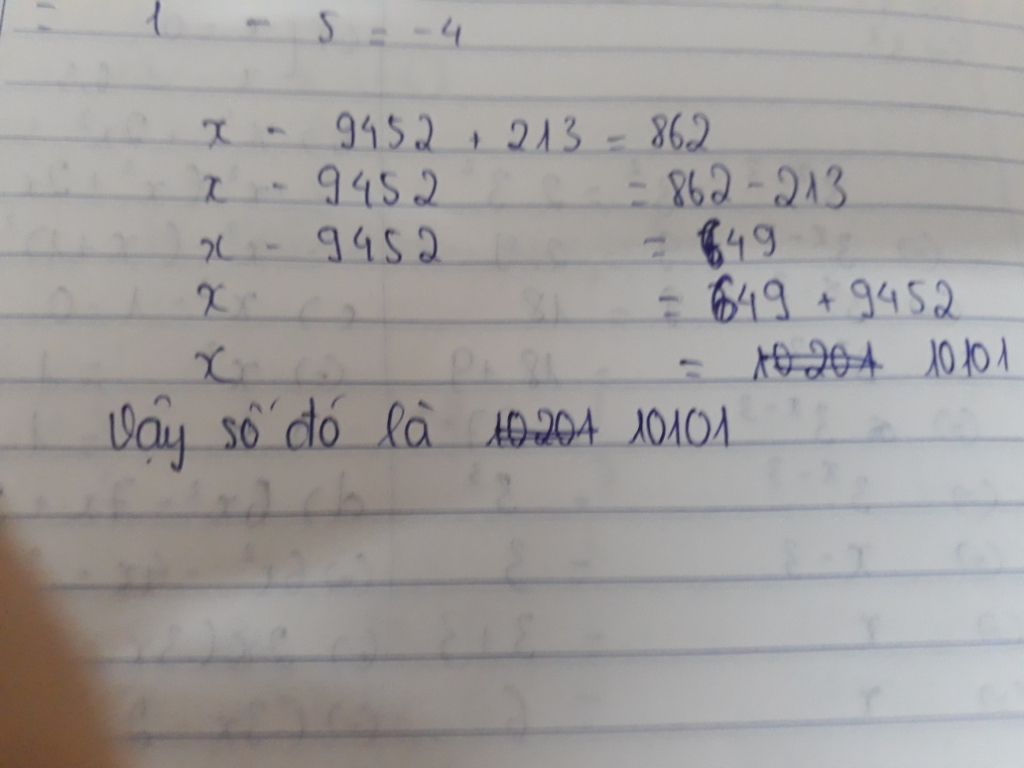 = 1 - 5 = -4
x - 9452 + 213 = 862
x - 9452 = 862 - 213
x - 9452 = 649
x = 649 + 9452
x = 10201 10101
Vậy số đó là 10201 10101